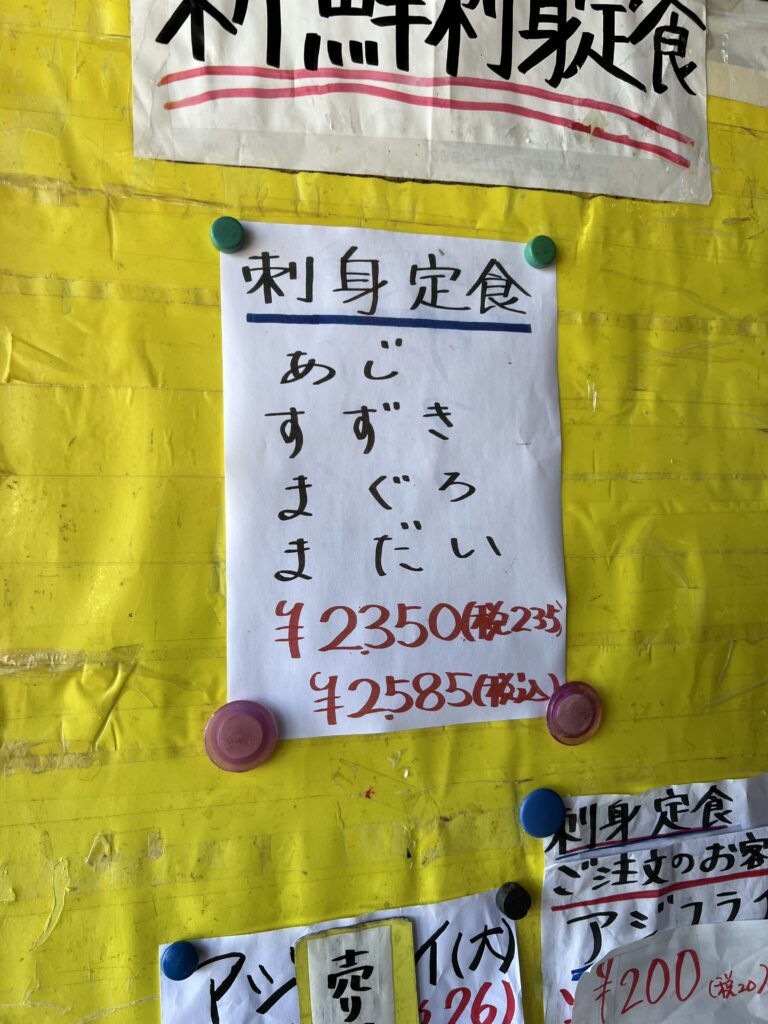 新鮮刺身定食
刺身定食
あじ
すずき
まぐろ
まだい
¥2,350(税235)
¥2,585(税込)
刺身定食
ご注文のお客
アジフライ
¥200(税20)
アジ
イ(大)
売り
26)